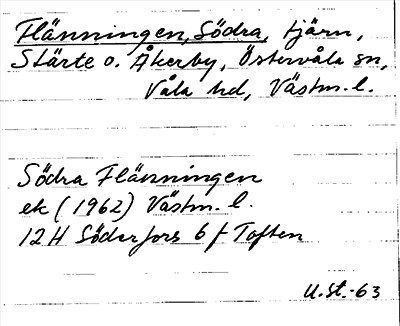 Flänningen, Södra, tjärn,
Stärte o. Åkerby, Östervåla sn,
Våla hd, Västm. l.
Södra Flänningen
ek (1962) Västm. l.
12H Söderfors 6 f Toften
U.St.-63